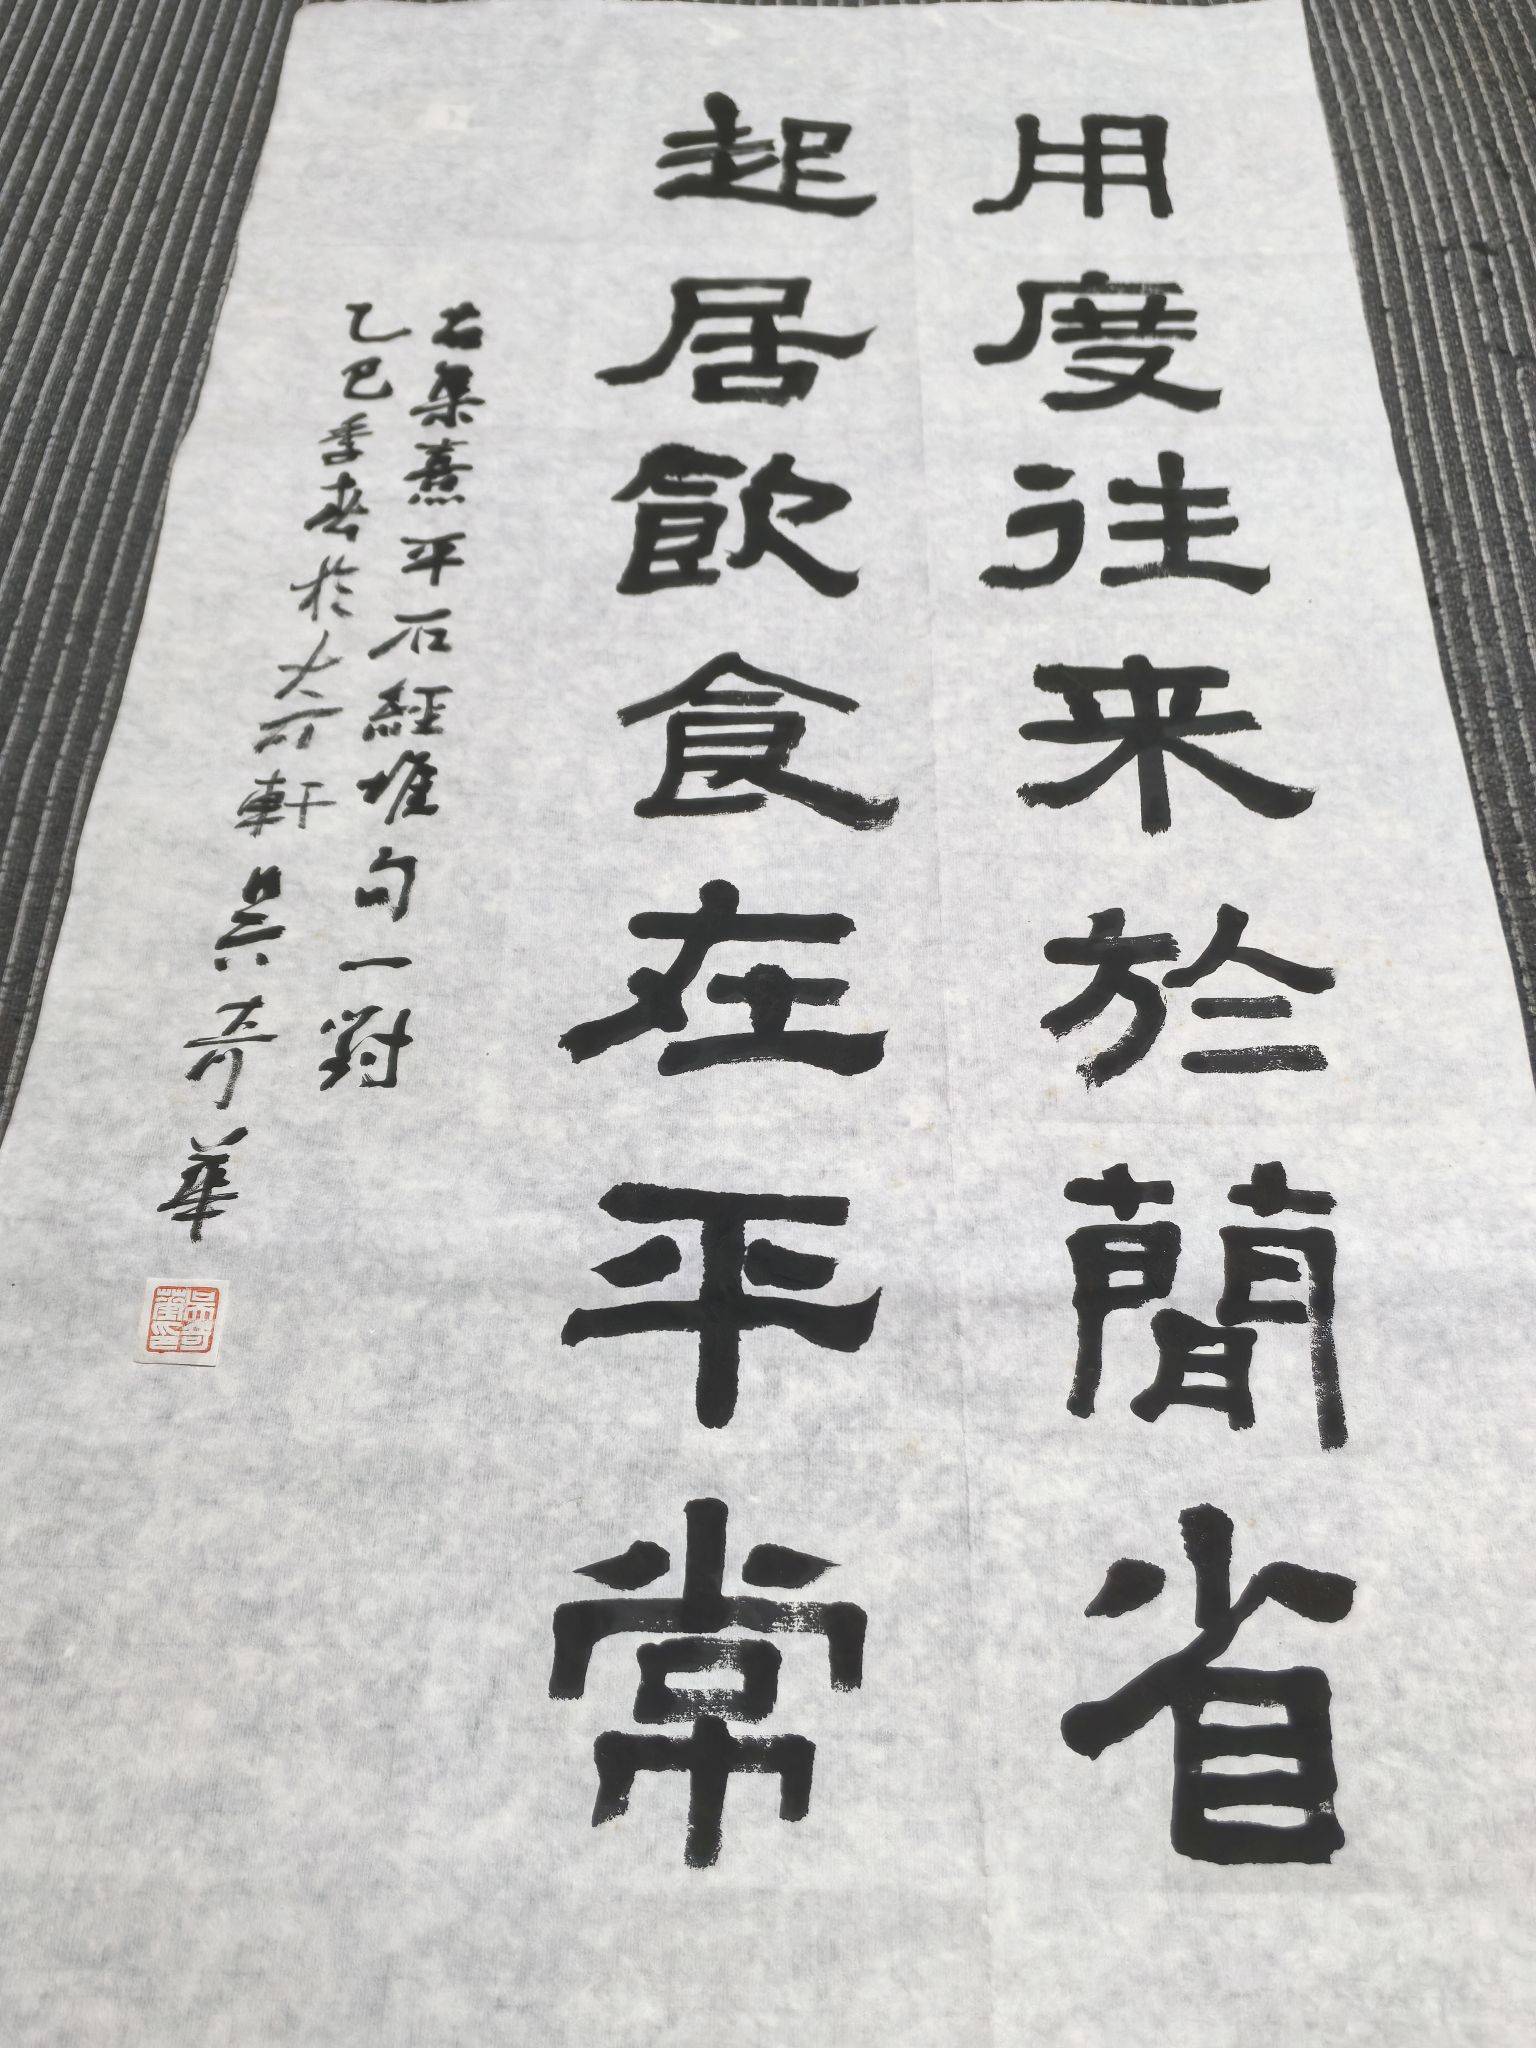 用度往来於簡省
起居飲食在平常
右集熹平石經堆句一對
乙巳季春於大可軒吴奇華